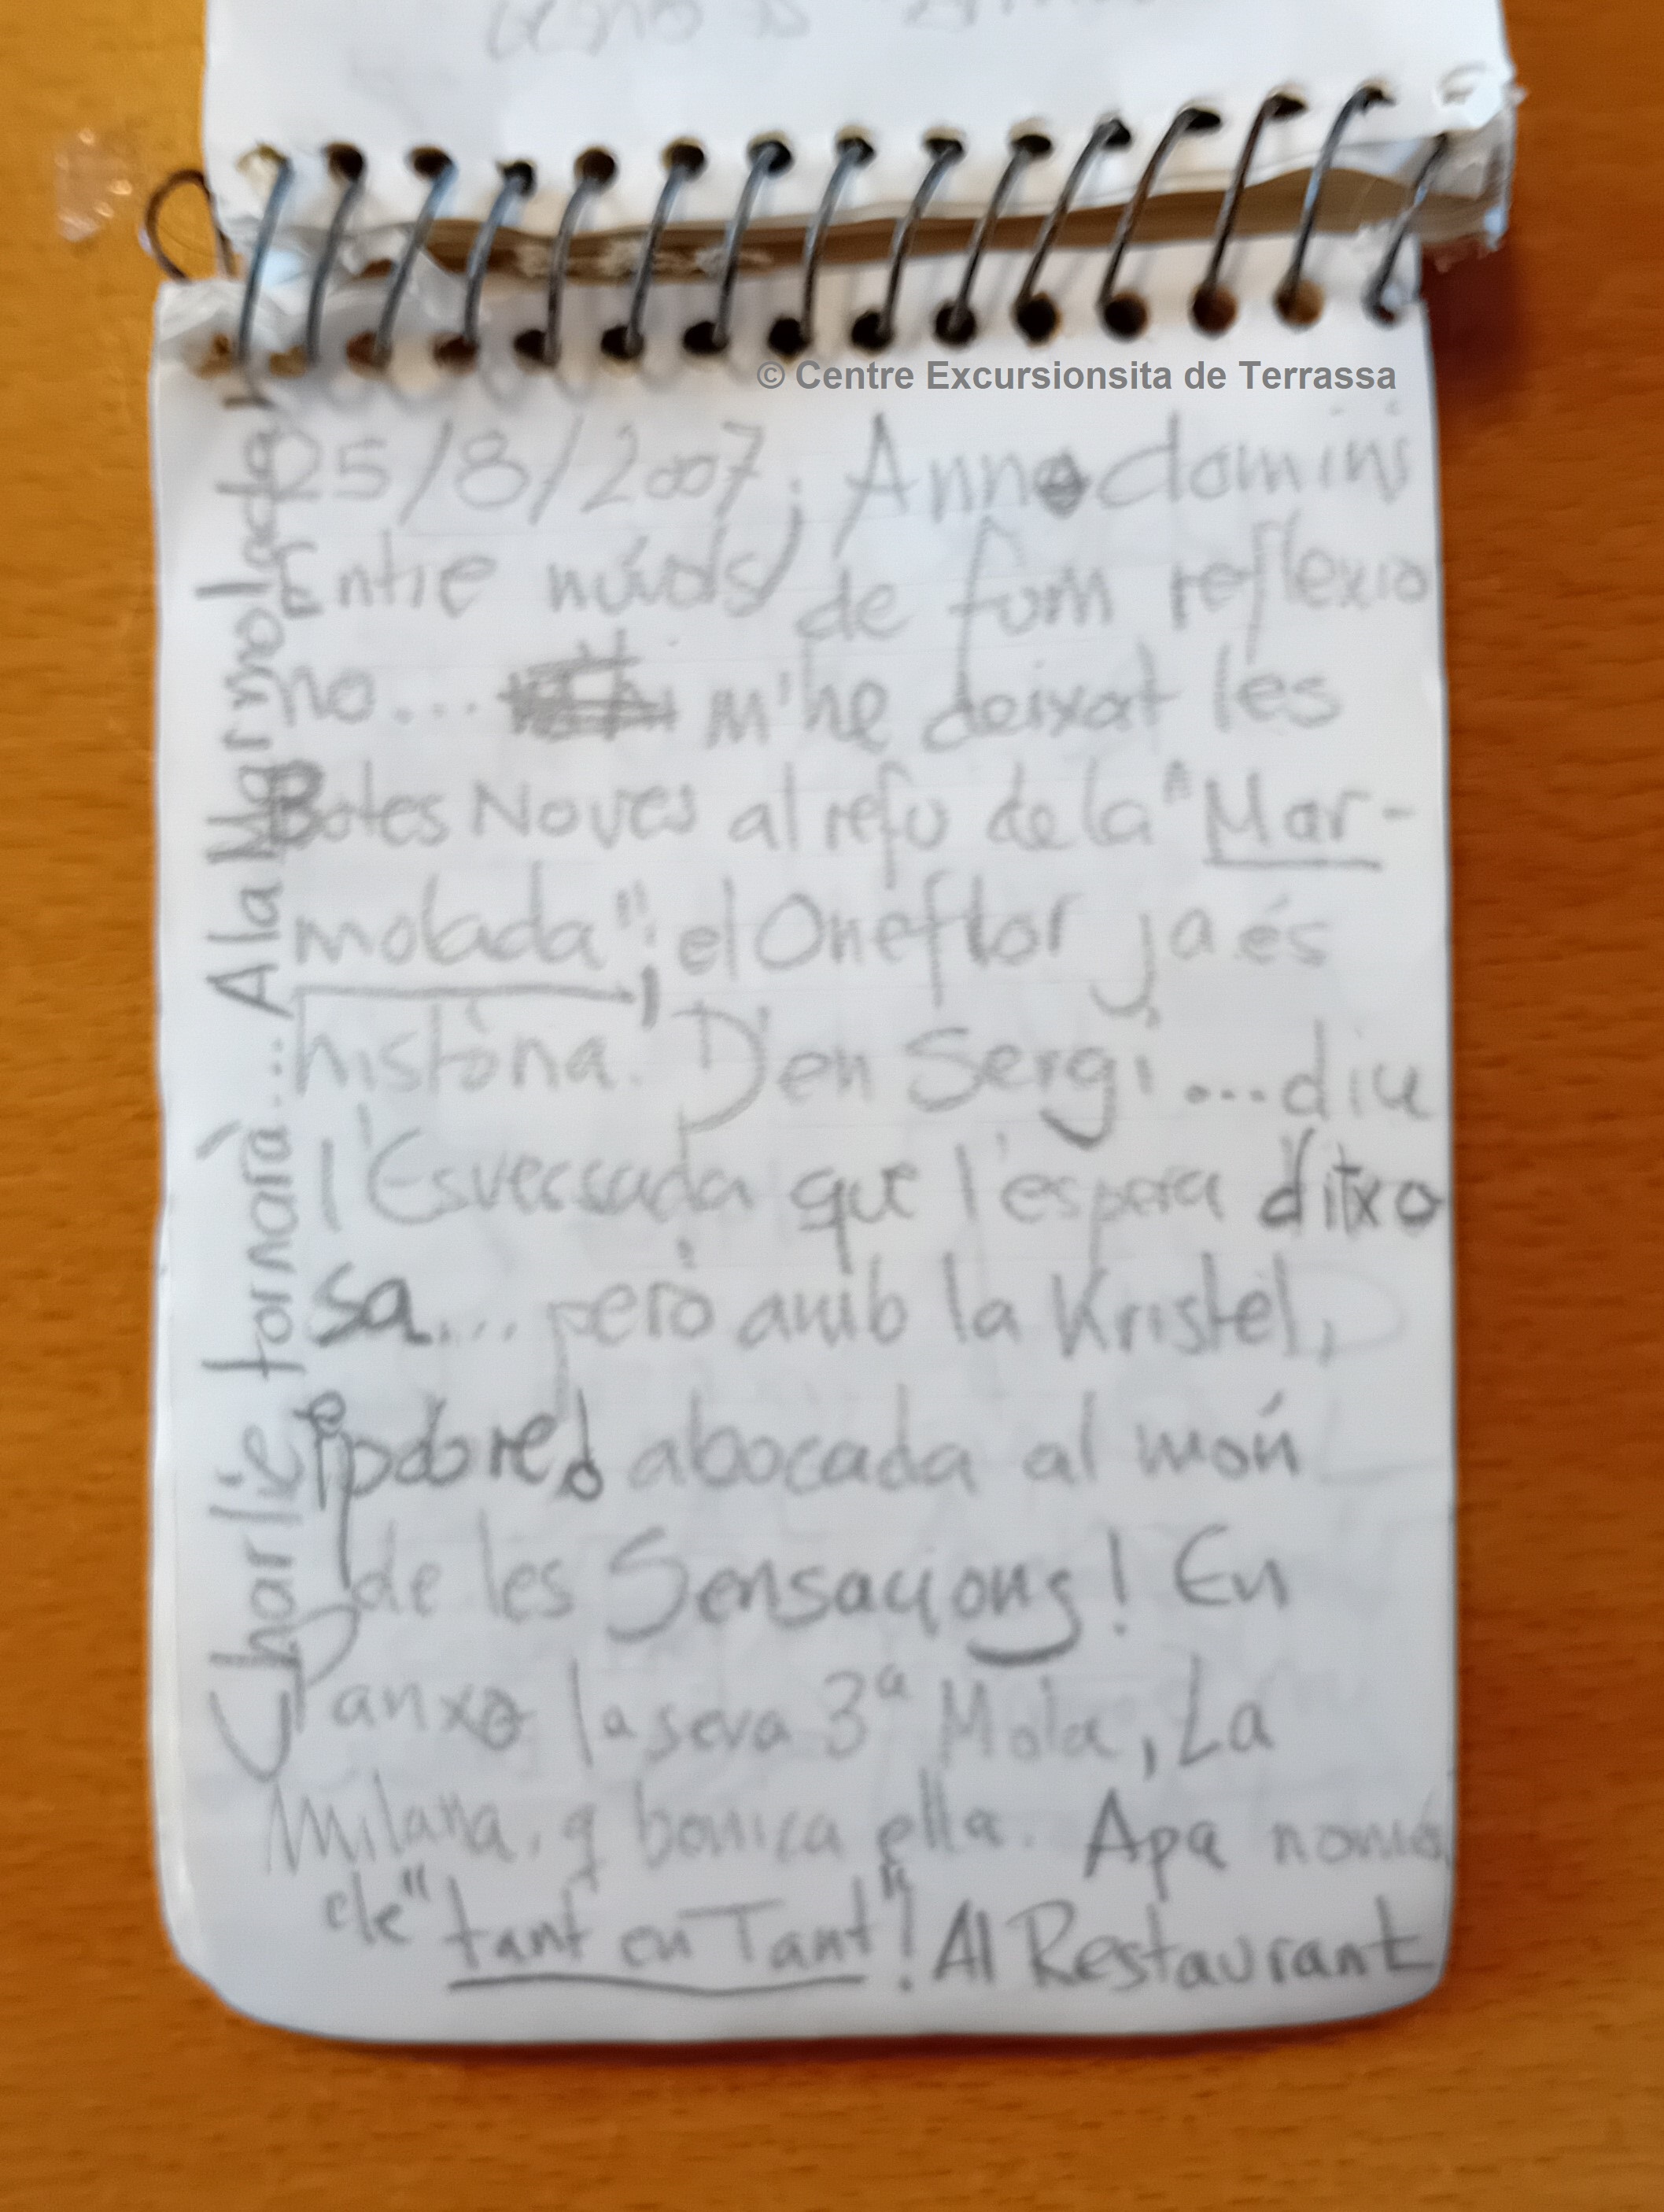 © Centre Excursionsita de Terrassa
25/8/2007; Anno domini
Entre núvols, de fum reflexio
no... m'he deixat les
Botes Noves al refu de la "Mar-
molada"; el Oneflor ja és
història. D'en Sergi ... diu
l'Esverssada que l'espera ditxo
sa... però amb la Kristel,
abocada al món
de les Sensacions! En
Panxo la seva 3ª Mola, La
Milana, q bonica ella. Apa només
de "tant en Tant"! Al Restaurant
Charlie tornarà... A la Marmolada